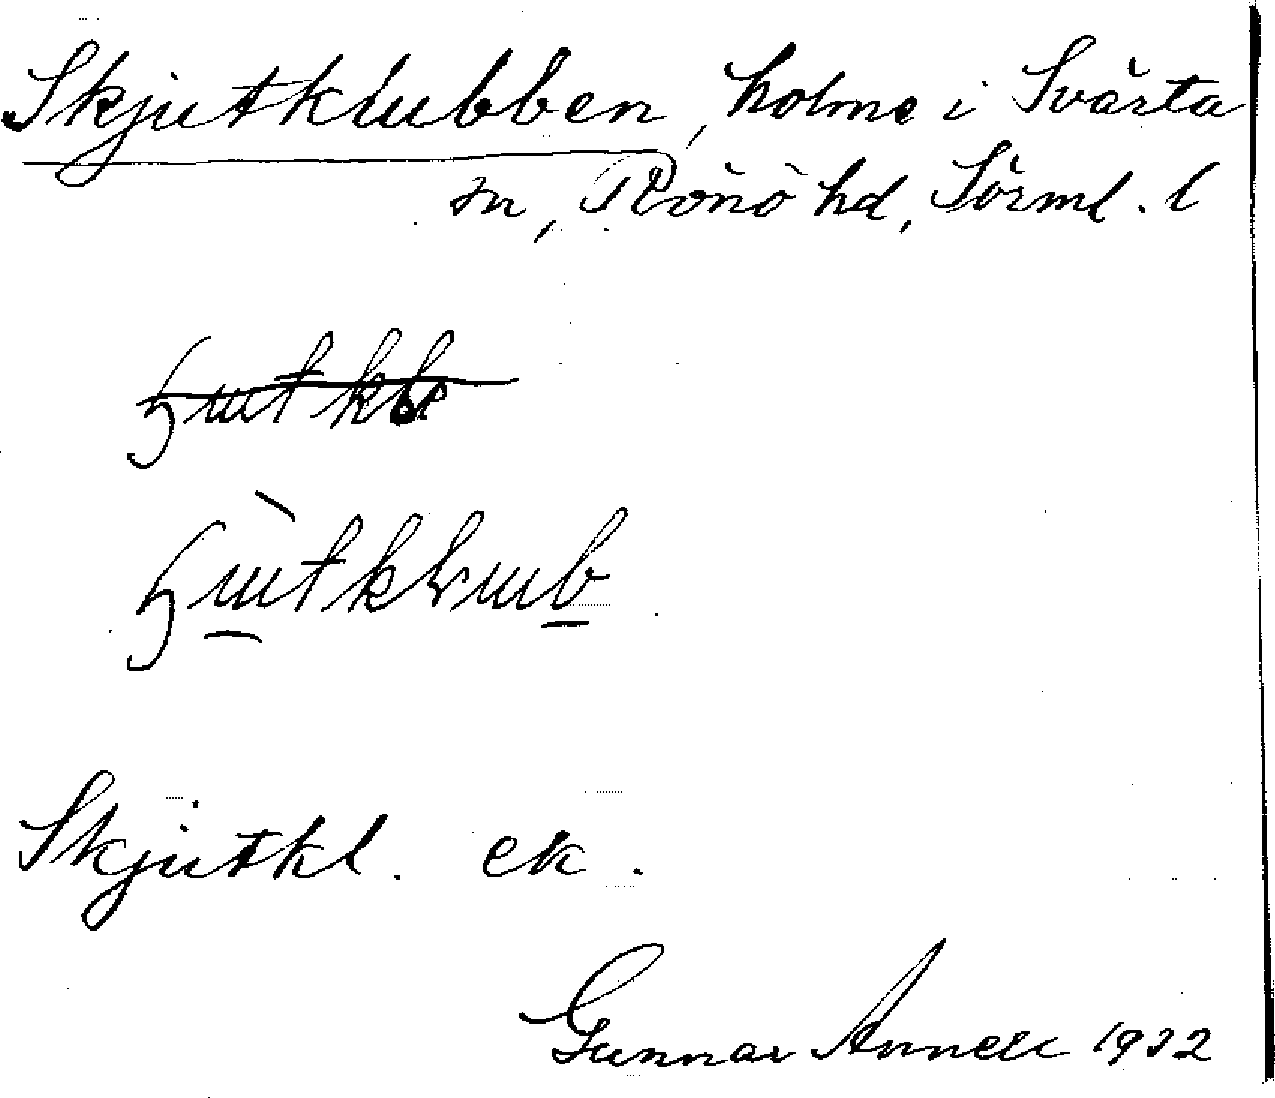 Skjutklubben, holme i Svärta
sn, Rönö hd, Sörml. l
Skjutkl. ek.
Gunnar Annell 1932